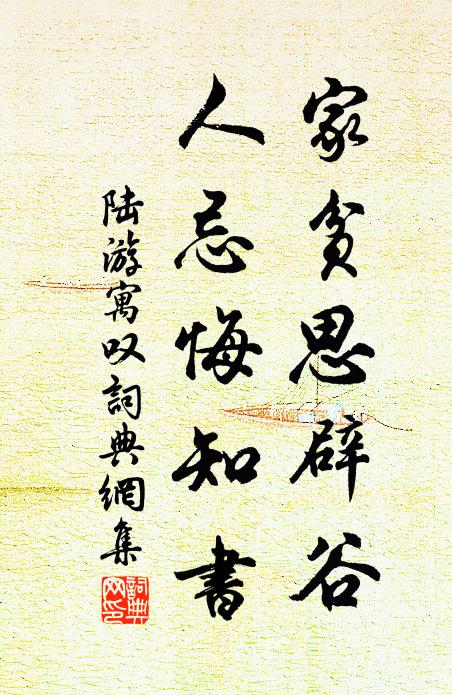 家贫思辟谷
人忌悔知書
陆游寓叹詞典網集
詞典网印